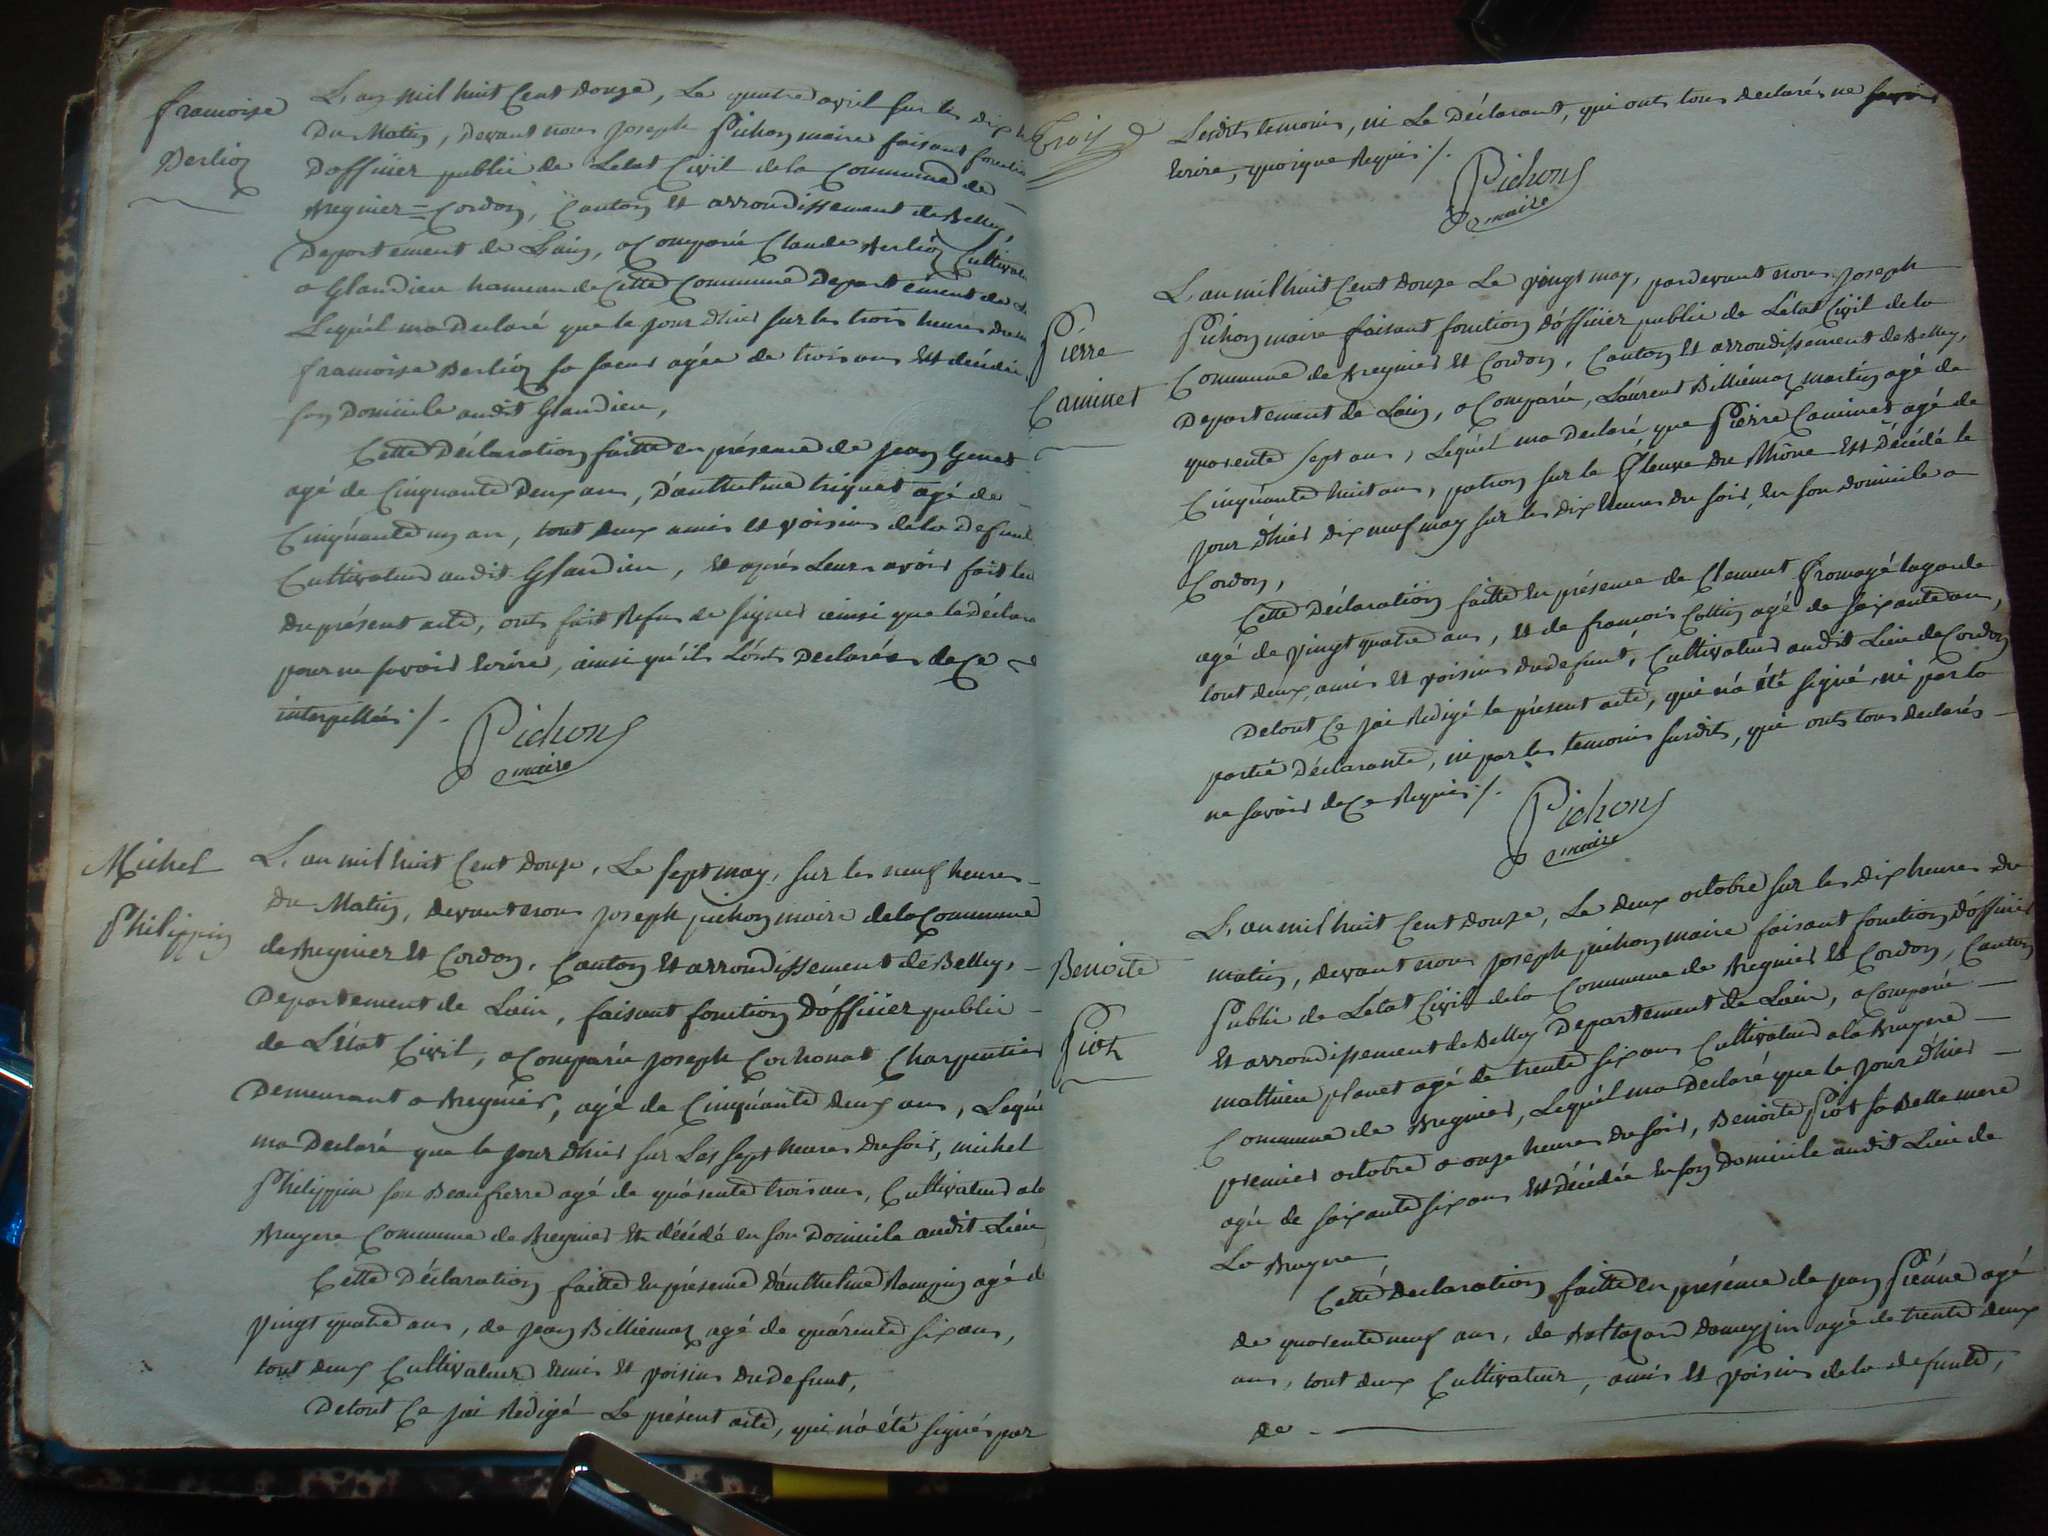 francoise
Berlioz
L'an mil huit Cent douze, Le quatre avril sur les dix
Du Matin, devant nous joseph Pichon maire faisant fonction
D'officier public de L'etat Civil de la Commune de
Bregnier = Cordon, Canton et arrondissement de Belley,
Departement de Lain, a Comparu Claude Berlioz Cultivateur
a Glandieu hameau de Cette Commune Departement de
Lequel ma Declaré que le jour d'hier sur les trois heures du
francoise Berlioz sa soeur agée de trois ans est décédée
son Domicile audit Glandieu,
Cette Déclaration faitte en présence de jean Genet
agé de Cinquante Deux ans, D'anthelme triquet agé de
Cinquante un an, tout deux amis et voisins de la Defunte
Cultivateur audit Glandieu, et après Leurs avoir fait
du présent acte, onts fait Refus de signer ainsi que le déclarant
pour ne savoir Ecrire, ainsi qu'ils L'onts Declarées de Ce
interpellés ./.
Pichon
maire
Michel
Philippin
L'an mil huit Cent douze, Le sept may, sur les neuf heures
Du Matin, devant nous joseph pichon maire de la Commune
de Bregnier et Cordon, Canton et arrondissement de Belley,
Departement de Lain, faisant fonction D'officier public
de L'état Civil, a Comparu joseph Cochonat Charpentier
Demeurant a Bregnier, agé de Cinquante deux ans, Lequel
ma Declaré que le jour d'hier sur Les sept heures du soir, michel
Philippin son Beaufrerre agé de quarente trois ans, Cultivateur a la
Bruyere Commune de Bregnier est décédé en son Domicile audit Lieu
Cette Déclaration faitte en présence d'anthelme Rampin agé de
vingt quatre ans, de jean Billiemaz agé de quarente six ans,
tout deux Cultivateur amis et voisins du Defunt,
De tout Ce jai Redigé Le présent acte, qui n'a été signés par
Trois
Lesdits temoins, ni Le Déclarant, qui onts tous declarés ne savoir
Ecrire, quoique Requis ./.
Pichon
maire
Pierre
Caminet
L'an mil huit Cent douze Le vingt may, pardevant nous joseph
Pichon maire faisant fonction d'officier public de L'état Civil de la
Commune de Bregnier et Cordon, Canton et arrondissement de Belley,
Departement de Lain, a Comparu, Laurent Billiémaz martin agé de
quarente sept ans, Lequel ma Declaré que Pierre Caminet agé de
Cinquante huit ans, patron sur le fleuve du Rhône est Décédé le
jour d'hier dix neuf may sur les dix heures du soir, en son domicile a
Cordon,
Cette Déclaration faitte en présence de Clement fromagé lagarde
agé de vingt quatre ans, et de francois Cottin agé de soixante an,
tout deux amis et voisins du defunt, Cultivateur audit Lieu de Cordon
De tout Ce jai Redigé le présent acte, qui n'a été signé, ni par la
partie Déclarante, ni par les temoins susdits, qui onts tous declarés
ne savoir de Ce Requis ./.
Pichon
maire
Benoite
Piot
L'an mil huit Cent douze, Le deux octobre sur les dix heures du
matin, devant nous joseph pichon maire faisant fonction d'officier
Public de L'état Civil de la Commune de Bregnier et Cordon, Canton
et arrondissement de Belley Departement de Lain, a Comparu
mathieu planet agé de trente six ans Cultivateur a la Bruyere
Commune de Bregnier, Lequel ma Declaré que le jour d'hier
premier octobre a onze heures du soir, Benoite Piot sa Belle mere
agée de soixante six ans est Décédée en son Domicile audit Lieu de
La Bruyere
Cette declaration faitte en présence de jean agé
de quarente neuf ans, de Baltazard Domeyjin agé de trente deux
ans, tout deux Cultivateur, amis et voisins de la defunte,
de